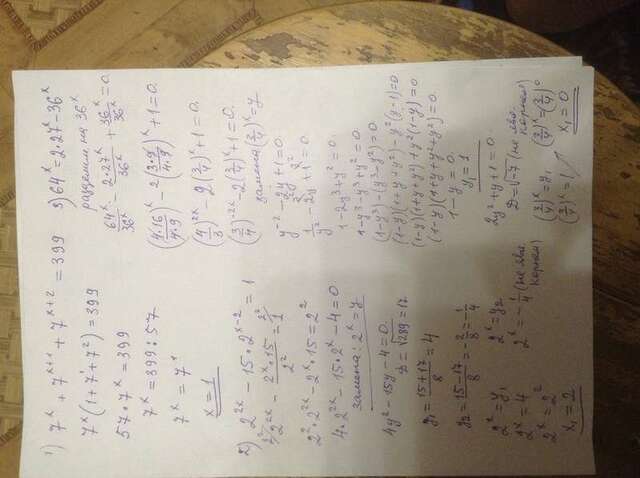 1) 7^x + 7^(x+1) + 7^(x+2) = 399
7^x (1+7^1+7^2) = 399
57 · 7^x = 399
7^x = 399 : 57
7^x = 7^1
x = 1
2) 2^(2x) − 15 · 2^(x−2) = 1
2^2/ 2^(2x) − (2^x · 15)/2^2 = 2^2/ 1
2^2 · 2^(2x) − 2^x · 15 = 2^2
4 · 2^(2x) − 15 · 2^x − 4 = 0
замена: 2^x = y
4y^2 − 15y − 4 = 0.
D = √289 = 17
y1 = (15+17)/8 = 4
y2 = (15−17)/8 = −2/8 = −1/4
2^x = y1   2^x = y2
2^x = 4   2^x = −1/4 (не явл. корнем)
2^x = 2^2
x1 = 2
3) 64^x = 2 · 27^x − 36^x
разделим на 36^x
64^x/36^x − (2 · 27^x)/36^x + 36^x/36^x = 0.
((4·16)/(4·9))^x − 2((3·9)/(4·9))^x + 1 = 0.
(4/3)^(2x) − 2(3/4)^x + 1 = 0.
(3/4)^(−2x) − 2(3/4)^x + 1 = 0.
замена (3/4)^x = y
y^(−2) − 2y + 1 = 0.
1/y^2 − 2y + 1 = 0.
1 − 2y^3 + y^2 = 0.
1 − y^3 − y^3 + y^2 = 0.
(1−y^3) − (y^3−y^2) = 0.
(1−y)(1+y+y^2) − y^2(y−1) = 0
(1−y)(1+y+y^2) + y^2(1−y) = 0
(1−y)(1+y+y^2+y^2) = 0.
1 − y = 0.
y1 = 1
2y^2 + y + 1 = 0.
D = √−7 (не явл. корнем)
(3/4)^x = y1   (3/4)^x = (3/4)^0
(3/4)^x = 1   x1 = 0